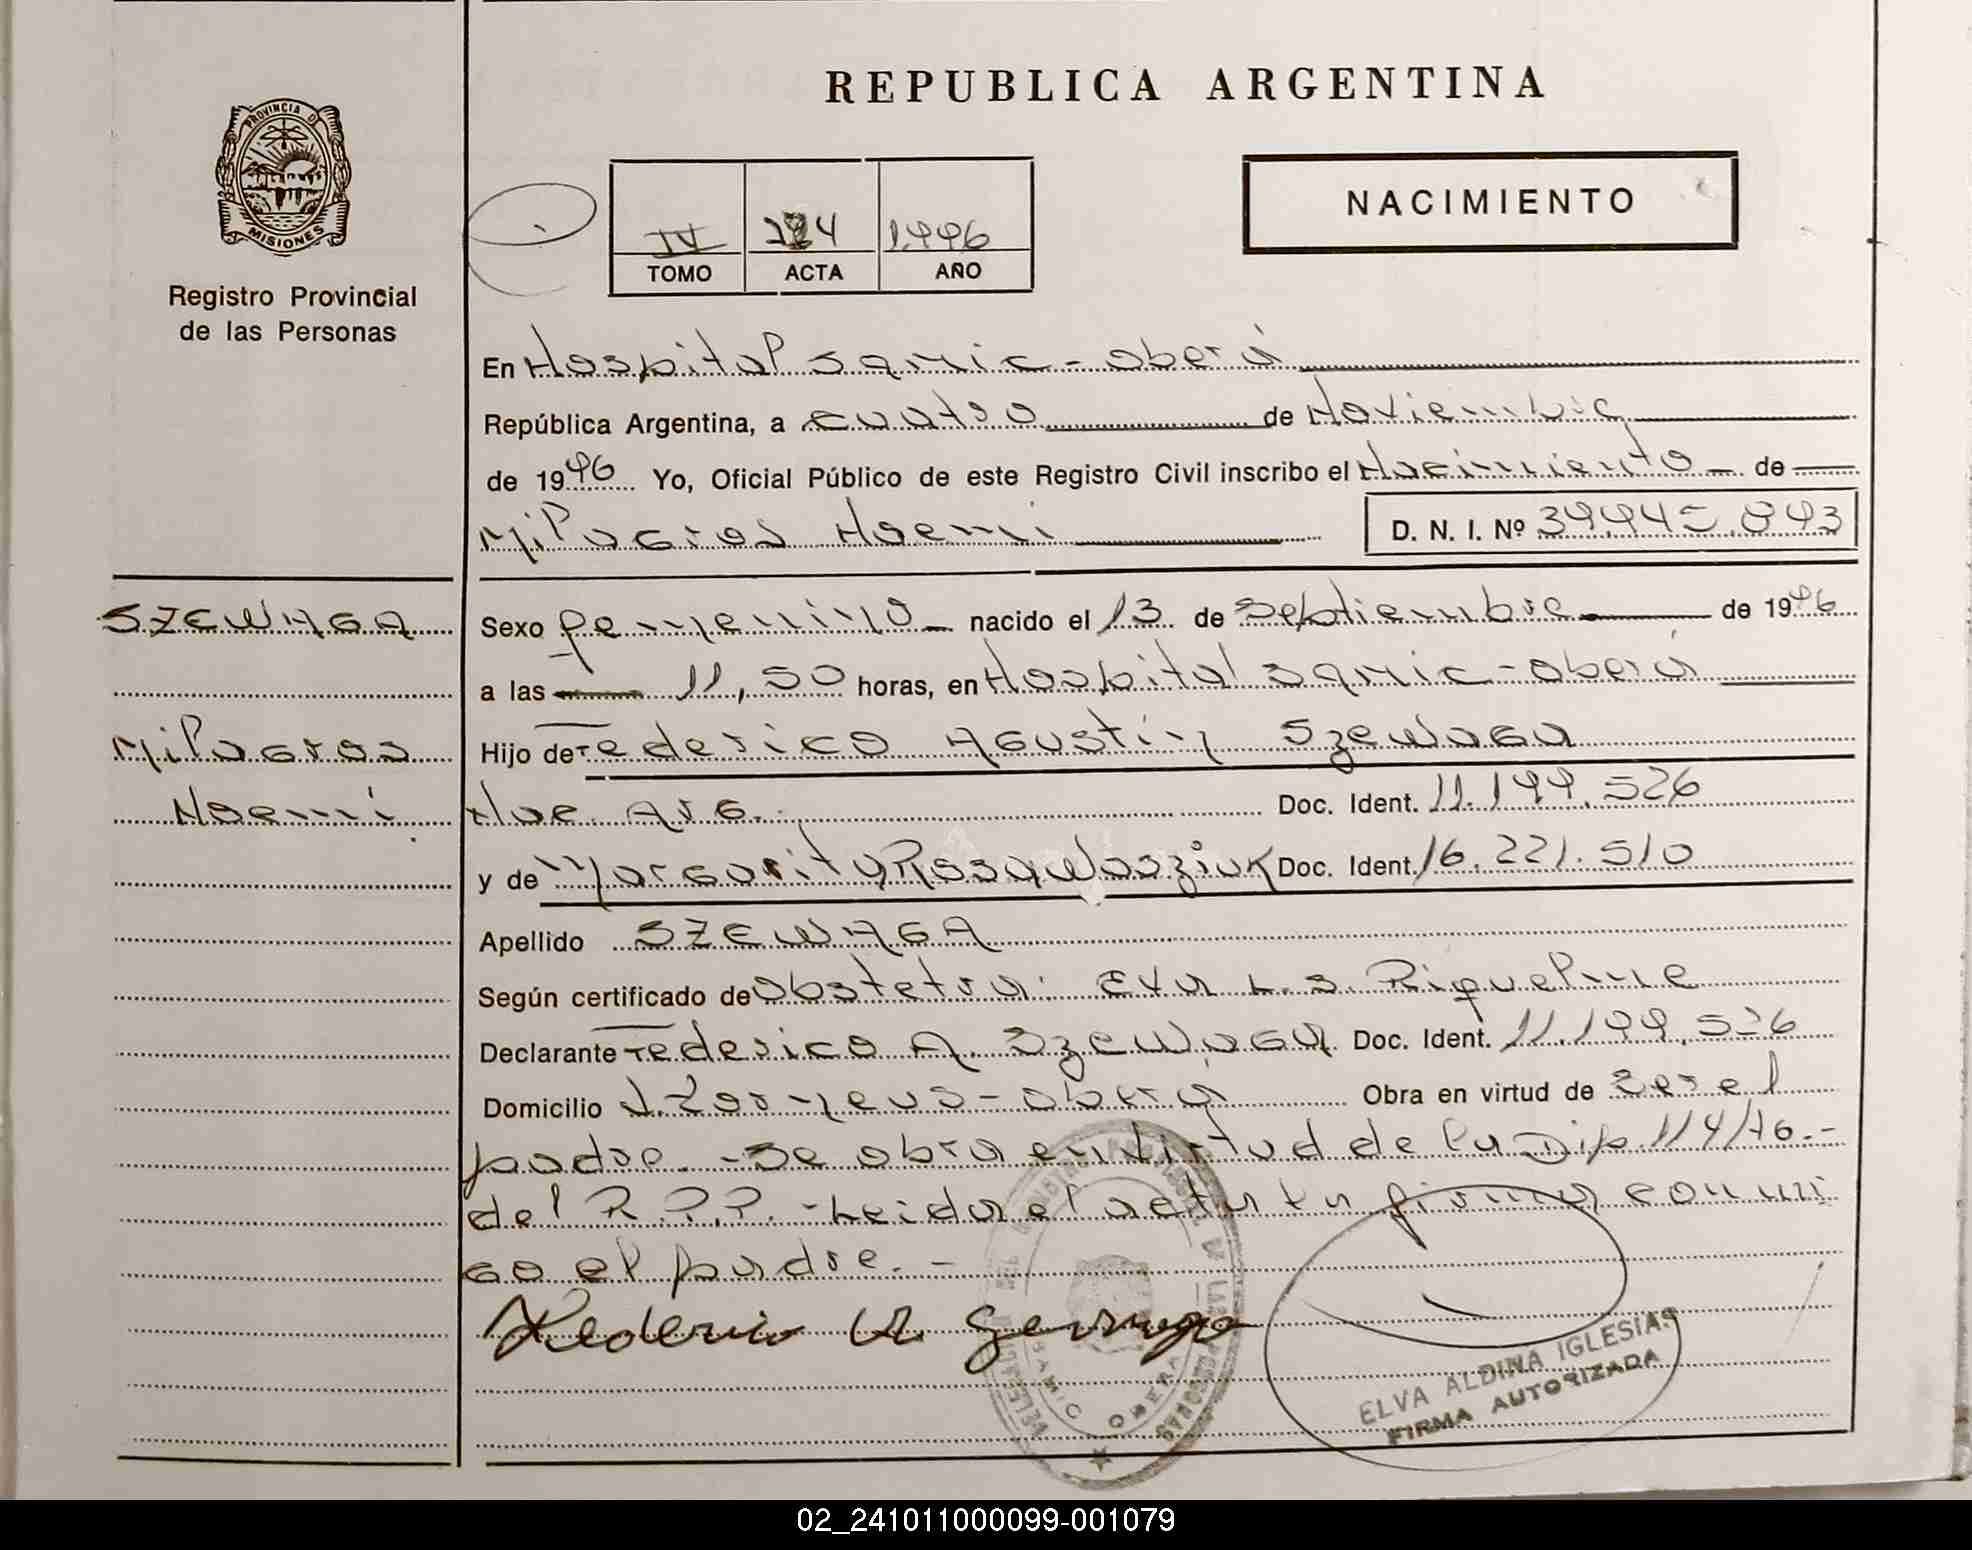 REPUBLICA ARGENTINA
PROVINCIA D
MISIONES
Registro Provincial
de las Personas
IV 224 1.996
TOMO ACTA AÑO
NACIMIENTO
En Hospital Samic - Oberá
República Argentina, a cuatro de Noviembre
de 1996 Yo, Oficial Público de este Registro Civil inscribo el Nacimiento de
Milagros Noemi D. N. I. Nº 39.945.893
SZEWAGA
Sexo femenino nacido el 13 de Septiembre de 1996
a las 11,50 horas, en Hospital Samic - Oberá
Milagros
Hijo de Federico Agustin Szewaga
Noemi
Nac. Arg. Doc. Ident. 11.199.526
y de Margarita Rosa Wasziuk Doc. Ident. 16.221.510
Apellido SZEWAGA
Según certificado de Obstetra: Eva L. S. Riquelme
Declarante Federico A. Szewaga Doc. Ident. 11.199.526
Domicilio Oberá Obra en virtud de ser el
padre. - Se obra en virtud de la Disp. 114/76.-
del R.P.P. - Leida el acta la firma conmi
go el padre. -
Federico A. Szewaga
SAMIC OBERA
ELVA ALDINA IGLESIAS
FIRMA AUTORIZADA
02_241011000099-001079